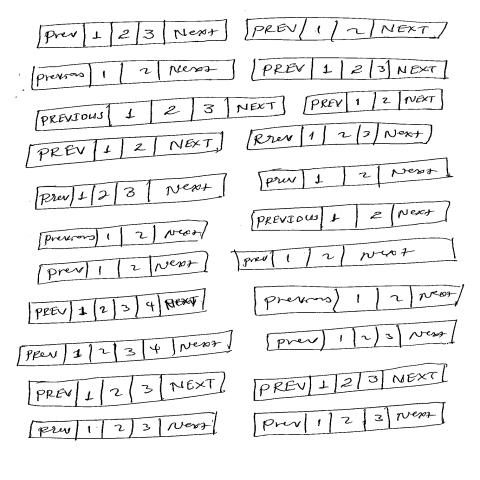 Prev 1 2 3 Next
PREV 1 2 NEXT
Previous 1 2 Next
PREV 1 2 3 NEXT
PREVIOUS 1 2 3 NEXT
PREV 1 2 NEXT
PREV 1 2 NEXT
Prev 1 2 3 Next
Prev 1 2 3 Next
Prev 1 2 Next
Previous 1 2 Next
PREVIOUS 1 2 NEXT
Prev 1 2 Next
Prev 1 2 Next
PREV 1 2 3 4 NEXT
Previous 1 2 Next
Prev 1 2 3 4 Next
Prev 1 2 3 Next
PREV 1 2 3 NEXT
PREV 1 2 3 NEXT
Prev 1 2 3 Next
Prev 1 2 3 Next